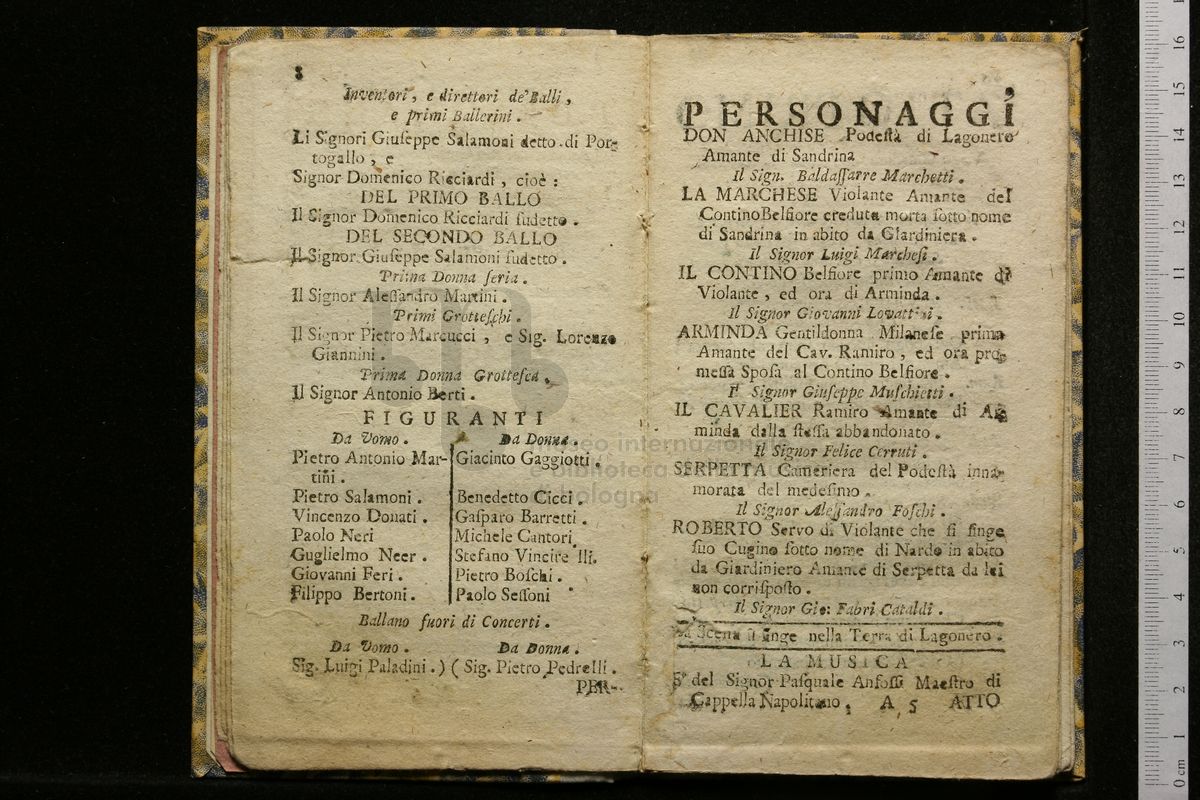 8
Inventori, e direttori de' Balli,
e primi Ballerini.
Li Signori Giuſeppe Salamoni detto di Por-
togallo, e
Signor Domenico Ricciardi, cioè:
DEL PRIMO BALLO
Il Signor Domenico Ricciardi ſudetto.
DEL SECONDO BALLO
Il Signor Giuſeppe Salamoni ſudetto.
Prima Donna ſeria.
Il Signor Aleſſandro Martini.
Primi Grotteſchi.
Il Signor Pietro Marcucci, e Sig. Lorenzo
Giannini.
Prima Donna Grotteſca.
Il Signor Antonio Berti.
FIGURANTI
Da Vomo. Da Donna.
Pietro Antonio Mar- Giacinto Gaggiotti.
tini.
Pietro Salamoni. Benedetto Cicci.
Vincenzo Donati. Gaſparo Barretti.
Paolo Neri Michele Cantori
Guglielmo Neer. Stefano
Giovanni Feri. Pietro Boſchi.
Filippo Bertoni. Paolo Seſſoni
Ballano fuori di Concerti.
Da Vomo. Da Donna.
Sig. Luigi Paladini.) (Sig. Pietro Pedrelli.
PER-
PERSONAGGI
DON ANCHISE Podeſtà di Lagonero
Amante di Sandrina
Il Sign. Baldaſſarre Marchetti.
LA MARCHESE Violante Amante del
Contino Belfiore creduta morta ſotto nome
di Sandrina in abito da Giardiniera.
Il Signor Luigi Marcheſi.
IL CONTINO Belfiore primo Amante di
Violante, ed ora di Arminda.
Il Signor Giovanni Lovattini.
ARMINDA Gentildonna Milaneſe prima
Amante del Cav. Ramiro, ed ora pro-
meſſa Spoſa al Contino Belfiore.
Il Signor Giuſeppe Muſchietti.
IL CAVALIER Ramiro Amante di Ar-
minda dalla ſteſſa abbandonato.
Il Signor Felice Cerruti.
SERPETTA Cameriera del Podeſtà inna-
morata del medeſimo.
Il Signor Aleſſandro Foſchi.
ROBERTO Servo di Violante che ſi finge
ſuo Cugino ſotto nome di Nardo in abito
da Giardiniero Amante di Serpetta da lei
non corriſpoſto.
Il Signor Gio: Fabri Cataldi.
La Scena ſi finge nella Terra di Lagonero.
LA MUSICA
E' del Signor Paſquale Anfoſſi Maeſtro di
Cappella Napolitano. A 5 ATTO
museo internazionale
e biblioteca della musica
di bologna
0 cm 1 2 3 4 5 6 7 8 9 10 11 12 13 14 15 16